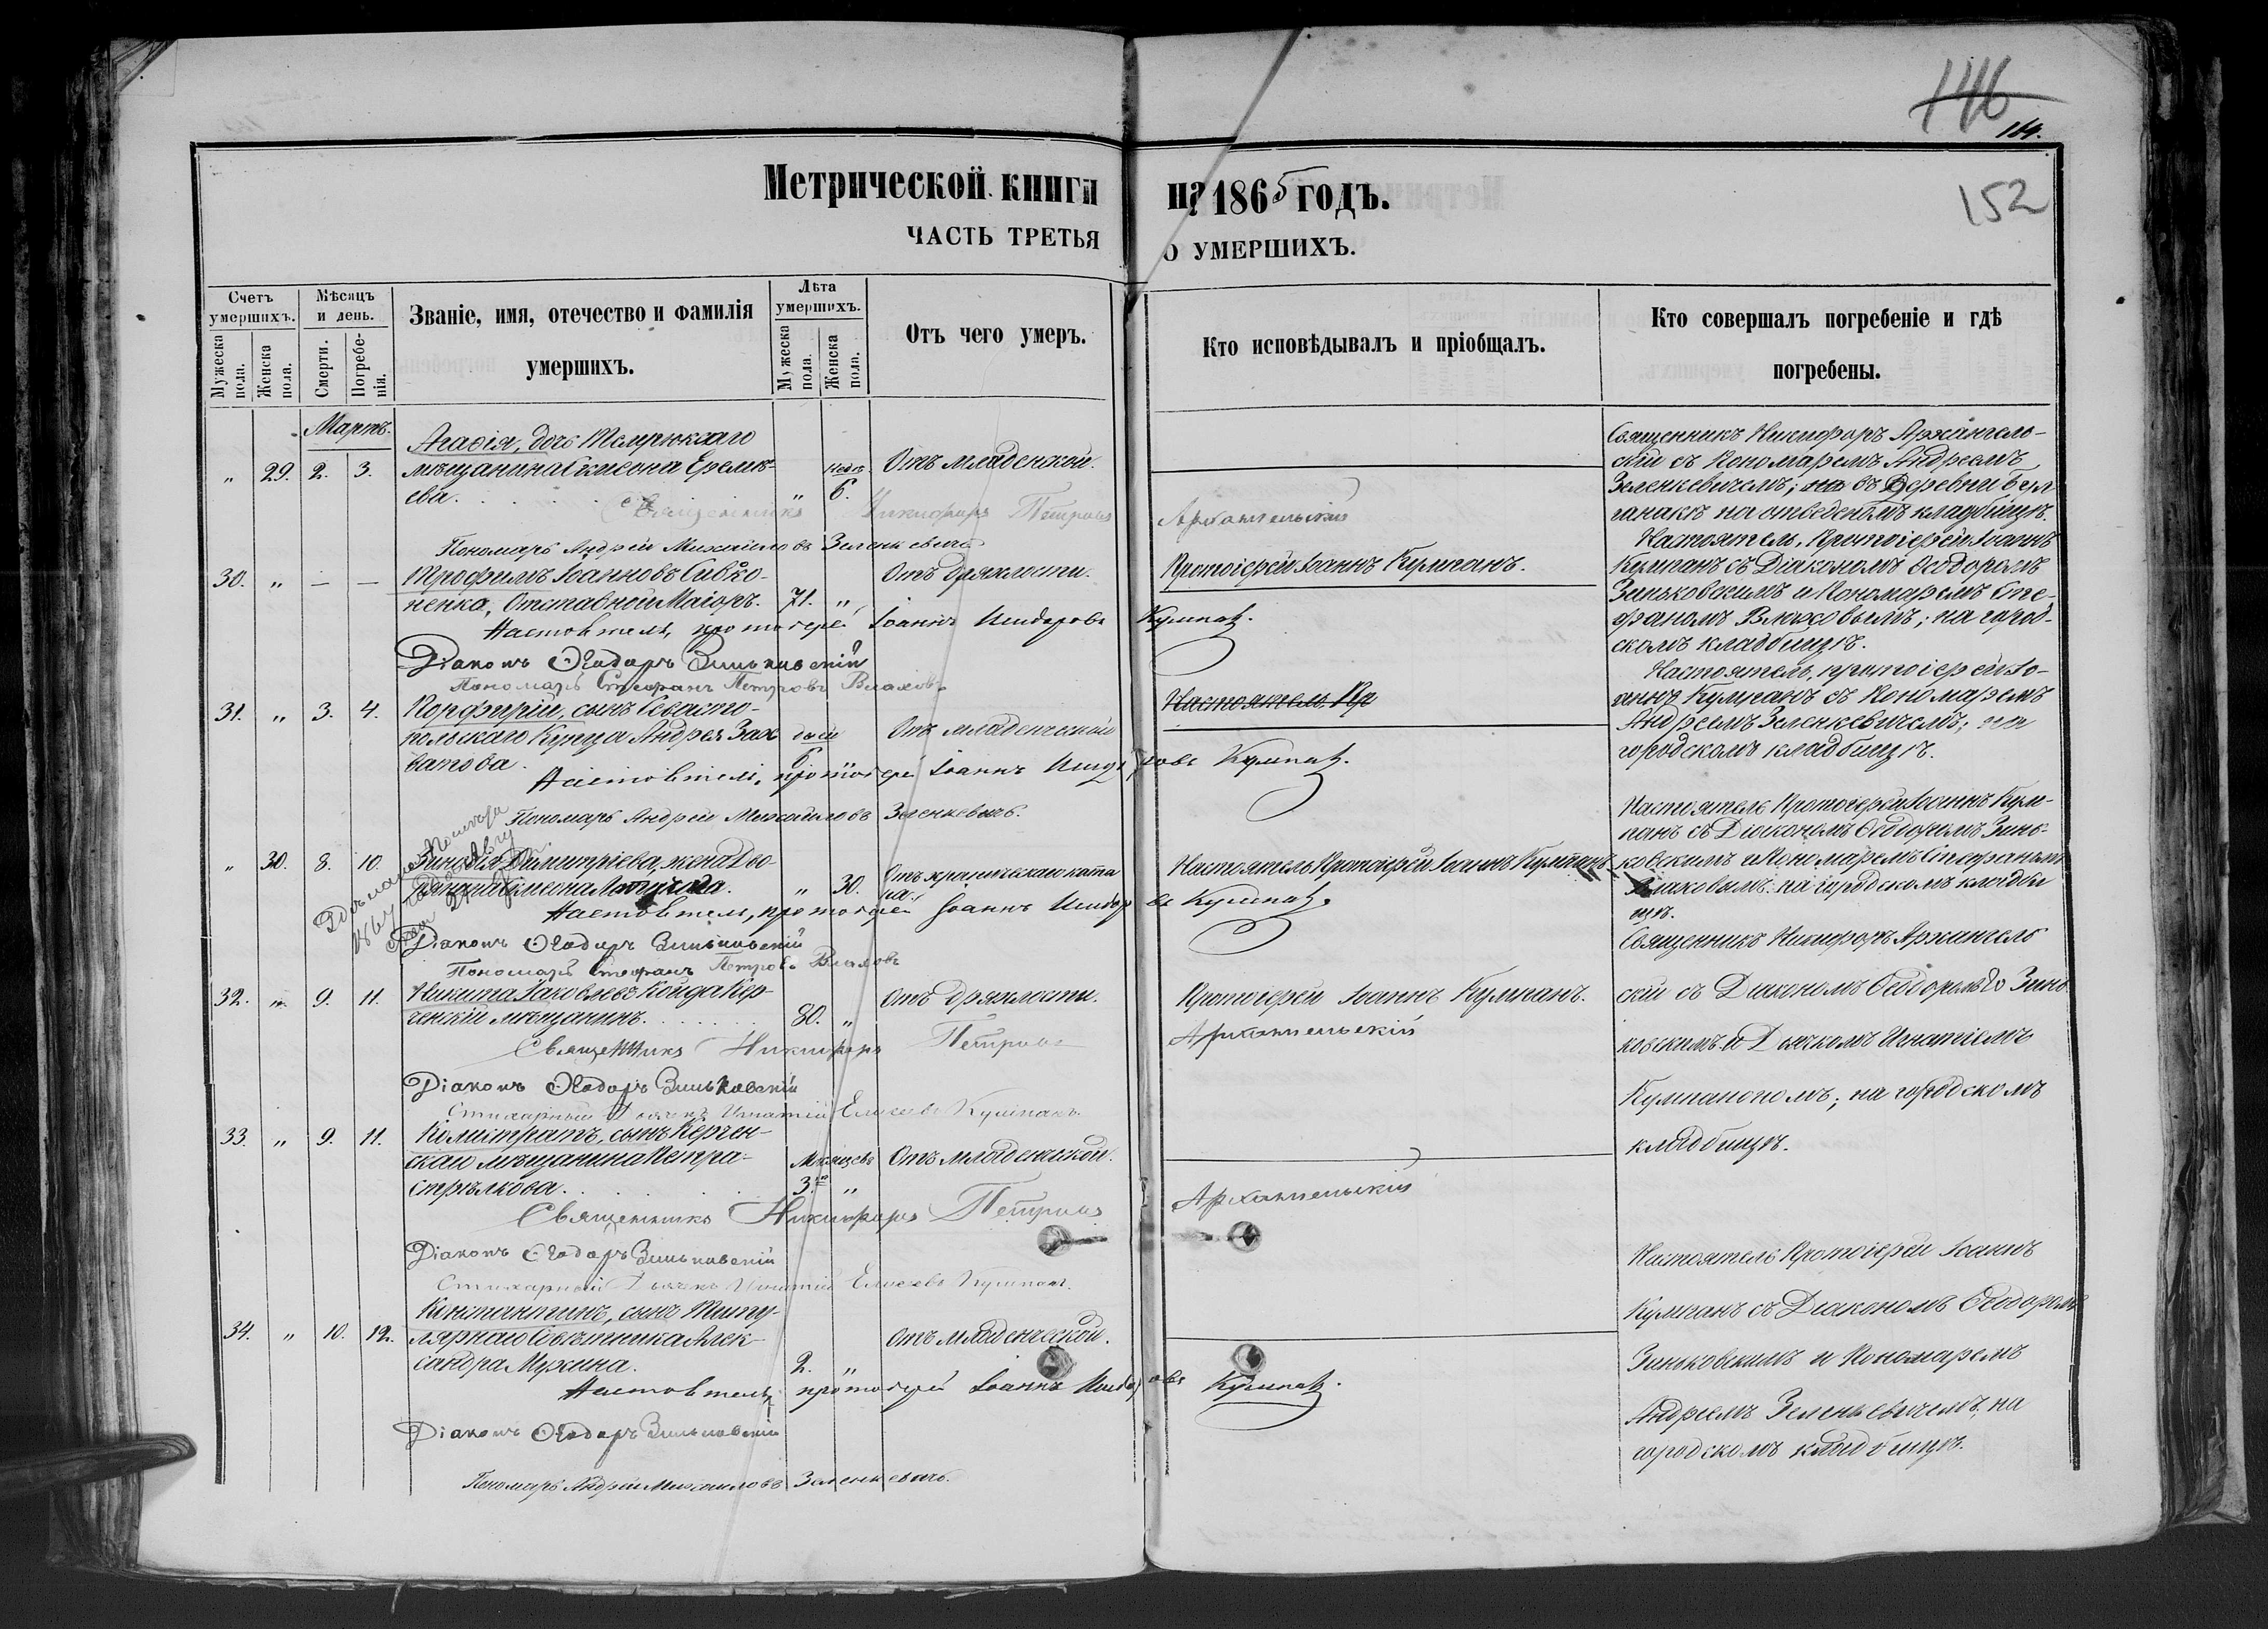 146
164.
152
Метрической книги на 1865 годъ.
ЧАСТЬ ТРЕТЬЯ О УМЕРШИХЪ.
Счетъ умершихъ.
Мужеска пола.
Женска пола.
Мѣсяцъ и день.
Смерти.
Погребенія.
Званіе, имя, отечество и фамилія
умершихъ.
Лѣта умершихъ.
Мужеска пола.
Женска пола.
Отъ чего умеръ.
Кто исповѣдывалъ и пріобщалъ.
Кто совершалъ погребеніе и гдѣ
погребены.
Мартъ.
" 29. 2. 3.
Агаѳія, дочь Темрюкскаго
мѣщанина Симеона Еремѣ-
ева.
недѣ.
" 6.
Отъ младенской.
Священникъ Никифоръ Архангель-
скій съ Пономаремъ Андреемъ
Зеленкевичемъ; въ деревни Бул-
ганакѣ на отведеномъ кладбищѣ.
Священникъ Никифоръ Петровъ Архангельскій
Пономарь Андрей Михайловъ Зеленкевичъ
30. " — —
Трофимъ Іоанновъ Сивко-
ненко, Отставной Маіоръ. 71. "
Отъ дряхлости.
Протоіерей Іоаннъ Кумпанъ.
Настоятель, Протоіерей Іоаннъ
Кумпанъ съ Діакономъ Ѳеодоромъ
Зиньковскимъ и Пономаремъ Сте-
фаномъ Влаховымъ; на город-
скомъ кладбищѣ.
Настоятель, протоіерей Іоаннъ Исидоровъ Кумпанъ.
Діаконъ Ѳеодоръ Зиньковскій
Пономарь Стефанъ Петровъ Влаховъ
31. " 3. 4.
Порфирій, сынъ Севасто-
польскаго Купца Андрея Зах
ватова.
дней
6
Отъ младенческой
Настоятель Пр
Настоятель, протоіерей Іо-
аннъ Кумпанъ съ Пономаремъ
Андреемъ Зеленкевичемъ; на
городскомъ кладбищѣ.
Настоятель, протоіерей Іоаннъ Исидоровъ Кумпанъ.
Пономарь Андрей Михайловъ Зеленкевичъ.
" 30. 8. 10.
Зиновія Димитріева, жена Дво-
рянина
" 30.
Настоятель Протоіерей Іоаннъ Кумпанъ
Настоятель Протоіерей Іоаннъ Кум-
панъ съ Діакономъ Ѳеодоромъ Зинь-
ковскимъ и Пономаремъ Стефаномъ
Влаховымъ: на городскомъ кладби
щѣ.
Настоятель, протоіерей Іоаннъ Исидоровъ Кумпанъ.
Діаконъ Ѳеодоръ Зиньковскій
Пономарь Стефанъ Петровъ Влаховъ
32. " 9. 11.
Никита Іаковлевъ Койда Кер-
ченскій мѣщанинъ. 80. "
Отъ дряхлости.
Протоіерей Іоаннъ Кумпанъ.
Священникъ Никифоръ Архангель
скій съ Діакономъ Ѳеодоромъ Зинь
ковскимъ и Дьячкомъ Игнатіемъ
Кумпаномъ; на городскомъ
кладбищѣ.
Священникъ Никифоръ Петровъ Архангельскій
Діаконъ Ѳеодоръ Зиньковскій
Стихарный Дьячекъ Игнатій Елисеевъ Кумпанъ.
33. " 9. 11.
Калистратъ, сынъ Керчен-
скаго мѣщанина Петра
Стрѣлкова.
Мѣсяцевъ
3. "
Отъ младенческой.
Священникъ Никифоръ Петровъ Архангельскій
Діаконъ Ѳеодоръ Зиньковскій
Стихарный Дьячекъ Игнатій Елисеевъ Кумпанъ.
34. " 10. 12.
Константинъ, сынъ Титу-
лярнаго Совѣтника Алек-
сандра Мухина.
2. "
Отъ младенческой.
Настоятель Протоіерей Іоаннъ
Кумпанъ съ Діакономъ Ѳеодоромъ
Зиньковскимъ и Пономаремъ
Андреемъ Зеленкевичемъ, на
городскомъ кладбищѣ.
Настоятель, протоіерей Іоаннъ Исидоровъ Кумпанъ.
Діаконъ Ѳеодоръ Зиньковскій
Пономарь Андрей Михайловъ Зеленкевичъ.